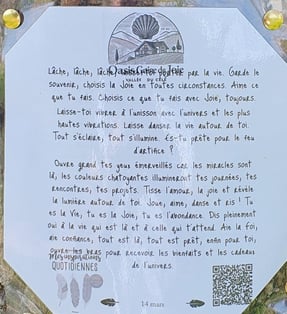 Oasis Gaïa de Joie
VALLÉE DU CÉLÉ
Lâche, lâche, lâche, laisse-toi porter par la vie. Garde le
souvenir, choisis la Joie en toutes circonstances. Aime ce
que tu fais. Choisis ce que tu fais avec Joie, toujours.
Laisse-toi vivrer à l'unisson avec l'univers et les plus
hautes vibrations. Laisse danser la vie autour de toi.
Tout s'éclaire, tout s'illumine. Es-tu prête pour le feu
d'artifice ?
Ouvre grand tes yeux émerveillés car les miracles sont
là, les couleurs chatoyantes illumineront tes journées, tes
rencontres, tes projets. Tisse l'amour, la joie et révèle
la lumière autour de toi. Joue, aime, danse et ris ! Tu
es la Vie, tu es la Joie, tu es l'abondance. Dis pleinement
oui à la vie qui est là et à celle qui t'attend. Aie la foi,
aie confiance, tout est là, tout est prêt, enfin pour toi,
ouvre les bras pour recevoir les bienfaits et les cadeaux
de l'univers.
Mes inspirations
QUOTIDIENNES
14 mars